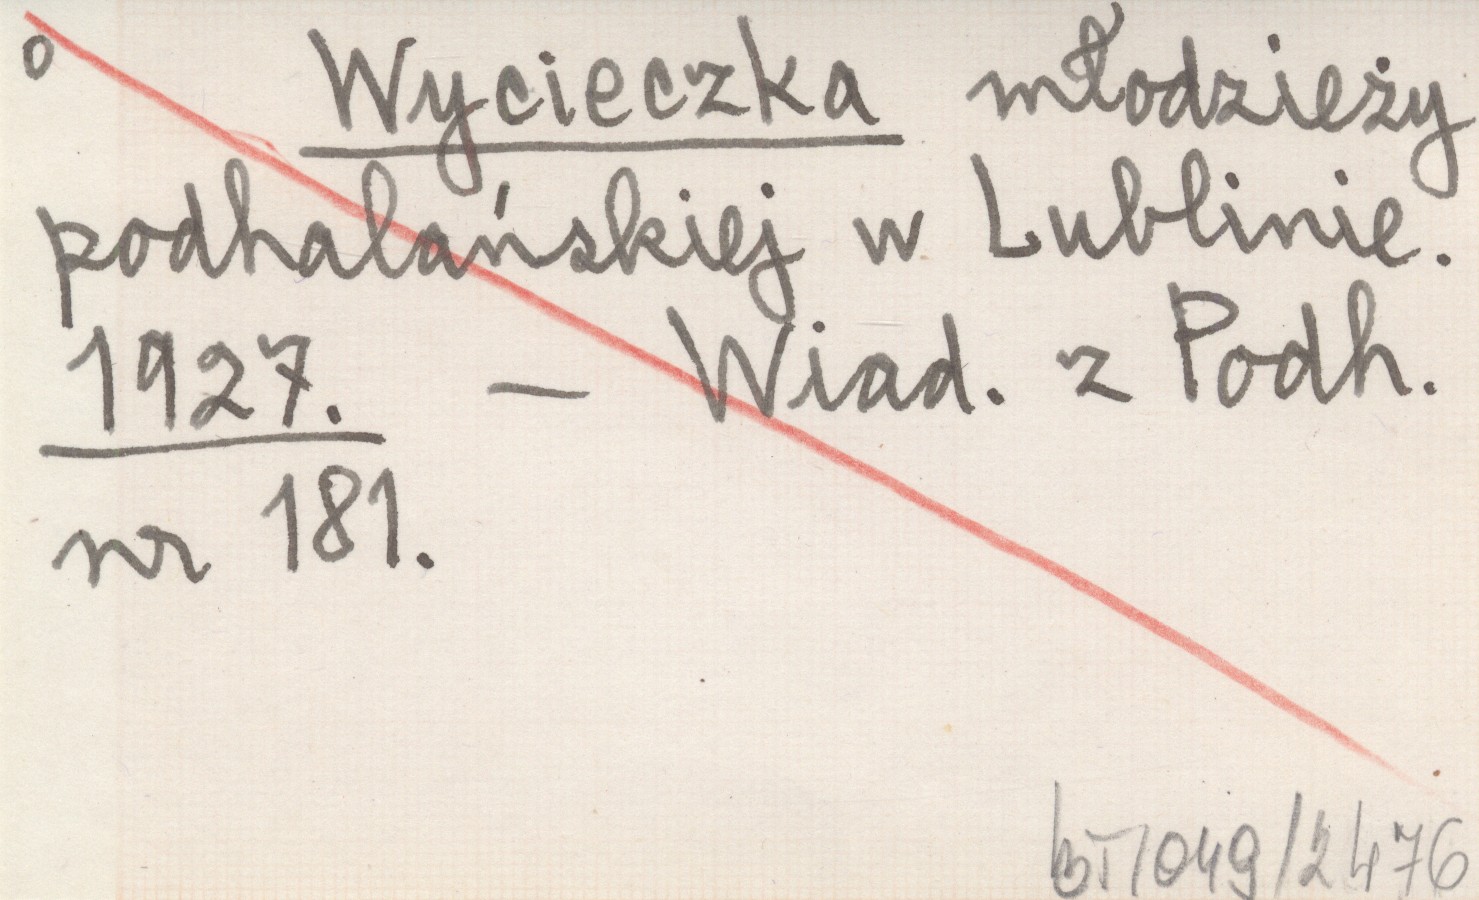 o Wycieczka młodzieży
podhalańskiej w Lublinie.
1927. — Wiad. z Podh.
nr 181.
BT/049/2476